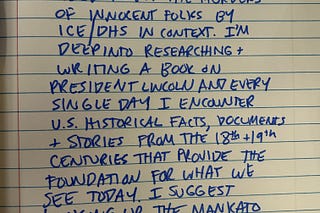 THE MURDERS
OF INNOCENT FOLKS BY
ICE/DHS IN CONTEXT. I'M
DEEP INTO RESEARCHING +
WRITING A BOOK ON
PRESIDENT LINCOLN AND EVERY
SINGLE DAY I ENCOUNTER
U.S. HISTORICAL FACTS, DOCUMENTS
+ STORIES FROM THE 18th + 19th
CENTURIES THAT PROVIDE THE
FOUNDATION FOR WHAT WE
SEE TODAY. I SUGGEST
UP THE MANKATO